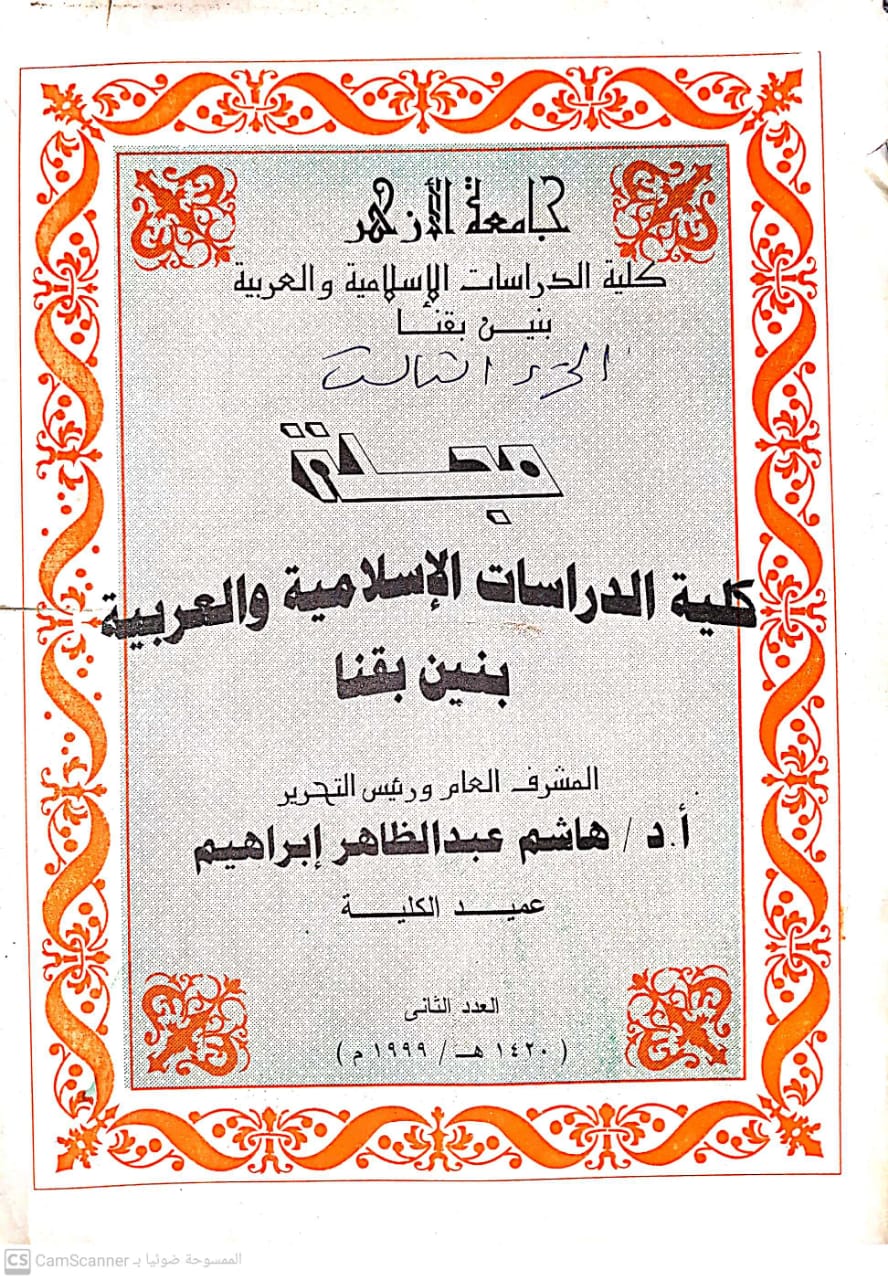 جامعة الأزهر
كلية الدراسات الإسلامية والعربية
بنين بقنا
الجزء الثالث
مجلة
كلية الدراسات الإسلامية والعربية
بنين بقنا
المشرف العام ورئس التحرير
أ.د/ هاشم عبدالظاهر إبراهيم
عميد الكلية
العدد الثانى
(١٤٢٠ هـ / ١٩٩٩ م)
CS CamScanner الممسوحة ضوئيا بـ